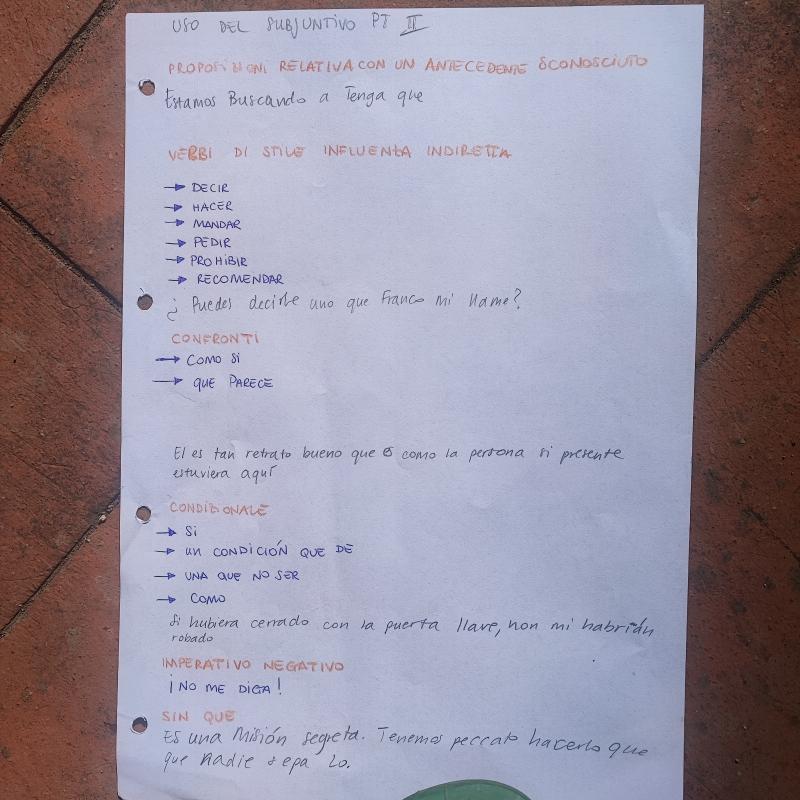 USO DEL SUBJUNTIVO PT II
PROPOSIZIONI RELATIVA CON UN ANTECEDENTE SCONOSCIUTO
Estamos Buscando a Tenga que
VERBI DI STILE INFLUENZA INDIRETTA
→ DECIR
→ HACER
→ MANDAR
→ PEDIR
→ PROHIBIR
→ RECOMENDAR
¿ Puedes decirle uno que Franco mi llame?
CONFRONTI
→ COMO SI
→ QUE PARECE
El es tan retrato bueno que es como la persona si presente
estuviera aquí
CONDIZIONALE
→ Si
→ un CONDICIÓN QUE DE
→ UNA QUE NO SER
→ COMO
Si hubiera cerrado con la puerta llave, non mi habrián
robado
IMPERATIVO NEGATIVO
¡NO ME DIGA!
SIN QUE
Es una Misión segreta. Tenemos peccato hacerlo que
que nadie sepa lo.